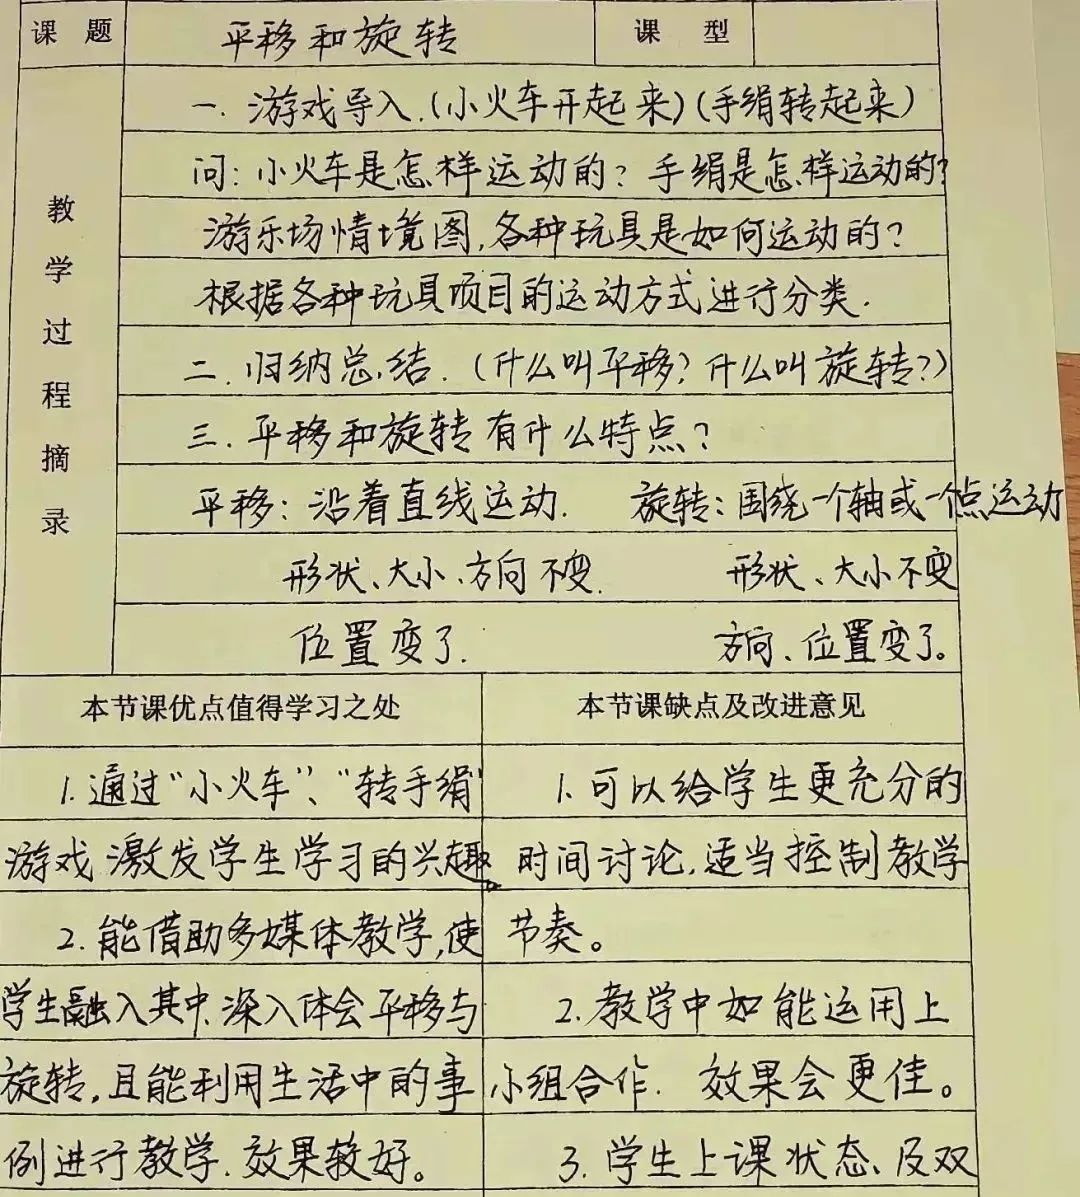 课题 平移和旋转 课型
教学过程摘录
一.游戏导入.(小火车开起来)(手绢转起来)
问:小火车是怎样运动的?手绢是怎样运动的?
游乐场情境图,各种玩具是如何运动的?
根据各种玩具项目的运动方式进行分类.
二.归纳总结.(什么叫平移?什么叫旋转?)
三.平移和旋转有什么特点?
平移:沿着直线运动. 旋转:围绕一个轴或一个点运动
形状、大小、方向不变. 形状、大小不变
位置变了. 方向、位置变了。
本节课优点值得学习之处
1.通过“小火车”、“转手绢”
游戏激发学生学习的兴趣。
2.能借助多媒体教学,使
学生融入其中.深入体会平移与
旋转,且能利用生活中的事
例进行教学.效果较好。
本节课缺点及改进意见
1.可以给学生更充分的
时间讨论,适当控制教学
节奏。
2.教学中如能运用上
小组合作. 效果会更佳。
3.学生上课状态、及双